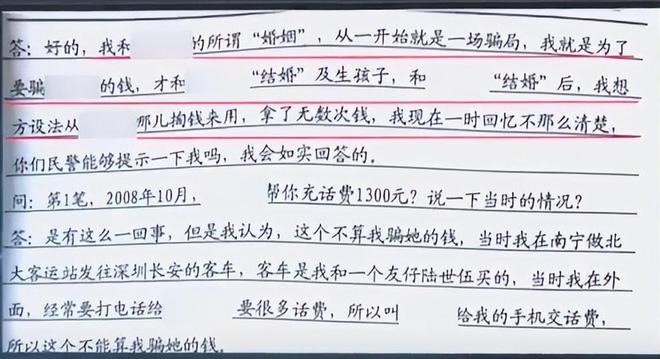 答：好的，我和 的所谓“婚姻”，从一开始就是一场骗局，我就是为了
要骗 的钱，才和 “结婚”及生孩子，和 “结婚”后，我想
方设法从 那儿掏钱来用，拿了无数次钱，我现在一时回忆不那么清楚，
你们民警能够提示一下我吗，我会如实回答的。
问：第1笔，2008年10月， 帮你充话费1300元？说一下当时的情况？
答：是有这么一回事，但是我认为，这个不算我骗她的钱，当时我在南宁做北
大客运站发往深圳长安的客车，客车是我和一个友仔陆世伍买的，当时我在外
面，经常要打电话给 要很多话费，所以叫 给我的手机交话费，
所以这个不能算我骗她的钱。